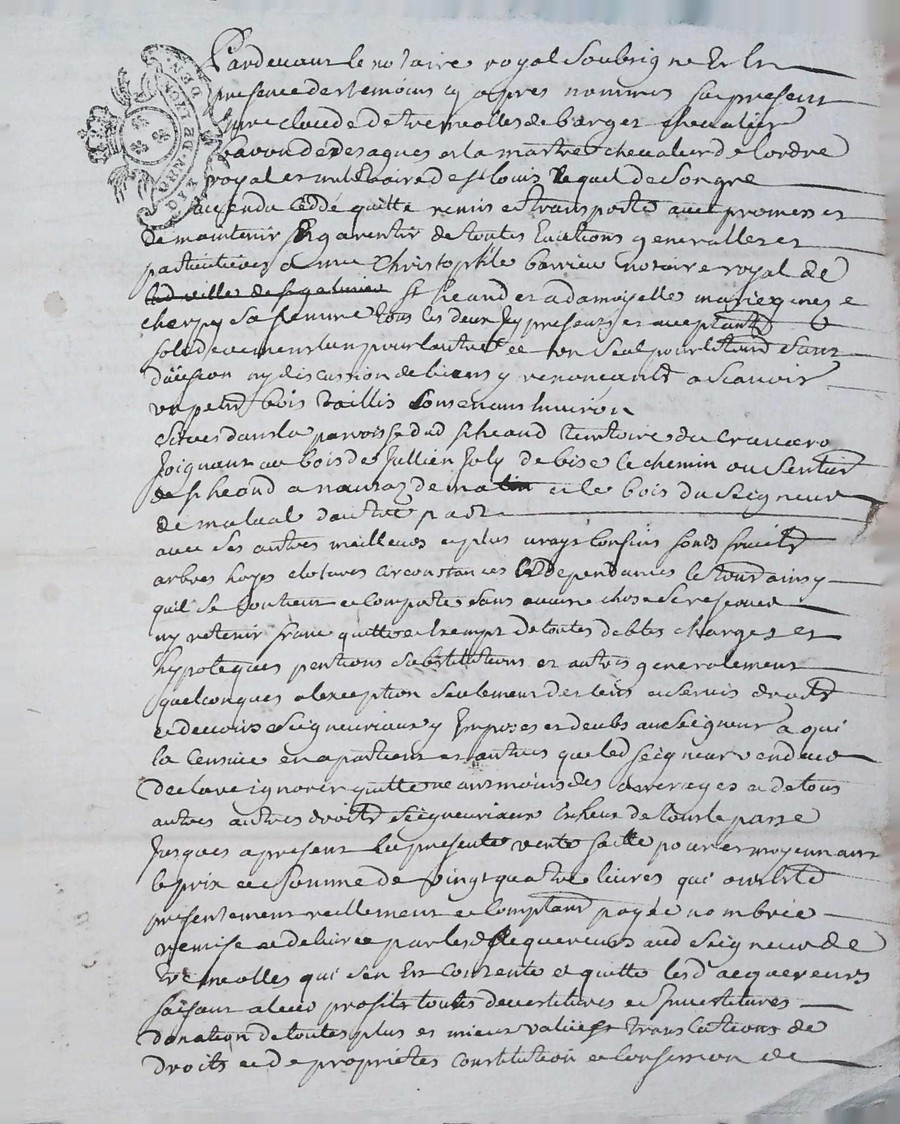 GEN. DE LION
DIX. DEN.
Pardevant le notaire royal Soubsigne Et En
presence des temoins cy apres nommes fut present
claude de tremeolles de barges chevalier
baron de desaques et la martre chevalier de lordre
royal et militaire de st louis lequel de Son gre
a vendu cede quitte remis et transporte avec promesse
de maintenir et garentir de toutes Evictions generalles et
particulieres a me Christophle barrieu notaire royal de
st heand et a damoyselle marie
cherpy sa femme tous les deux Icy presents et acceptants
solidairement lun pour lautre et un Seul pour le tout sans
division ny discussion de biens y renoncants a Scavoir
un petit bois taillis contenant Environ
situes dans la parroisse dud st heand territoire du
Joignant au bois de Jullien Joly de bise le chemin ou Sentier
de st heand a de matin et le bois du Seigneur
de malval dautre part
avec ses autres meilleurs et plus vrays confins fonds fruits
arbres hayes clotures circonstances et dependances le tout ainsy
quil se contient et comporte sans aucune chose se reserver
ny retenir franc quitte et Exempt de toutes debtes charges et
hypoteques pentions substitutions et autres generalement
quelconques a lexception seulement des cens et servis droits
et devoirs Seigneuriaux y Imposes et deubs au Seigneur a qui
la Censive en apartient et autres que led seigneur vendeur
declare ignorer quitte neantmoins des arrerages et de tous
autres autres droits Seigneuriaux Echeus de tout le passe
Jusques a present La presente vente faitte pour et moyennant
le prix et Somme de vingt quatre livres qui a este
presentement reellement et comptant payee nombree
remise et delivree par lesd acquereurs aud Seigneur de
tremeolles qui sen Est contente et quitte lesd acquereurs
faisant a leur profit toutes devestitures et Investitures
donation de toutes plus et mieux values translations de
droits et de proprietes constitution et concession de